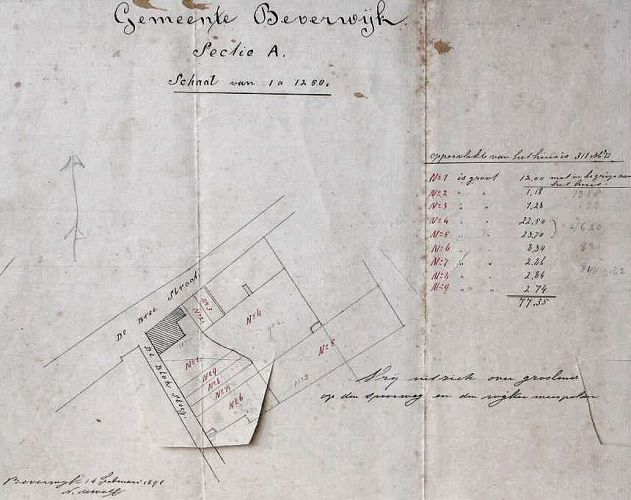 Gemeente Beverwijk.
Sectie A.
Schaal van 1 a 1250.
oppervlakte van het huis is 311 M²
No 1 is groot 12,00 met inbegrip van
het huis.
No 2 " " 1,18
No 3 " " 1,28
No 4 " " 22,50
No 5 " " 23,70
No 6 " " 8,34
No 7 " " 2,86
No 8 " " 2,86
No 9 " " 2,74
77,35
De Bree Straat
De Bloks Steeg.
No 1
No 2
No 3
No 4
No 5
No 6
No 7
No 8
No 9
Vrij uitzicht over
op den spoorweg en den
Beverwijk 14 Februari 1891